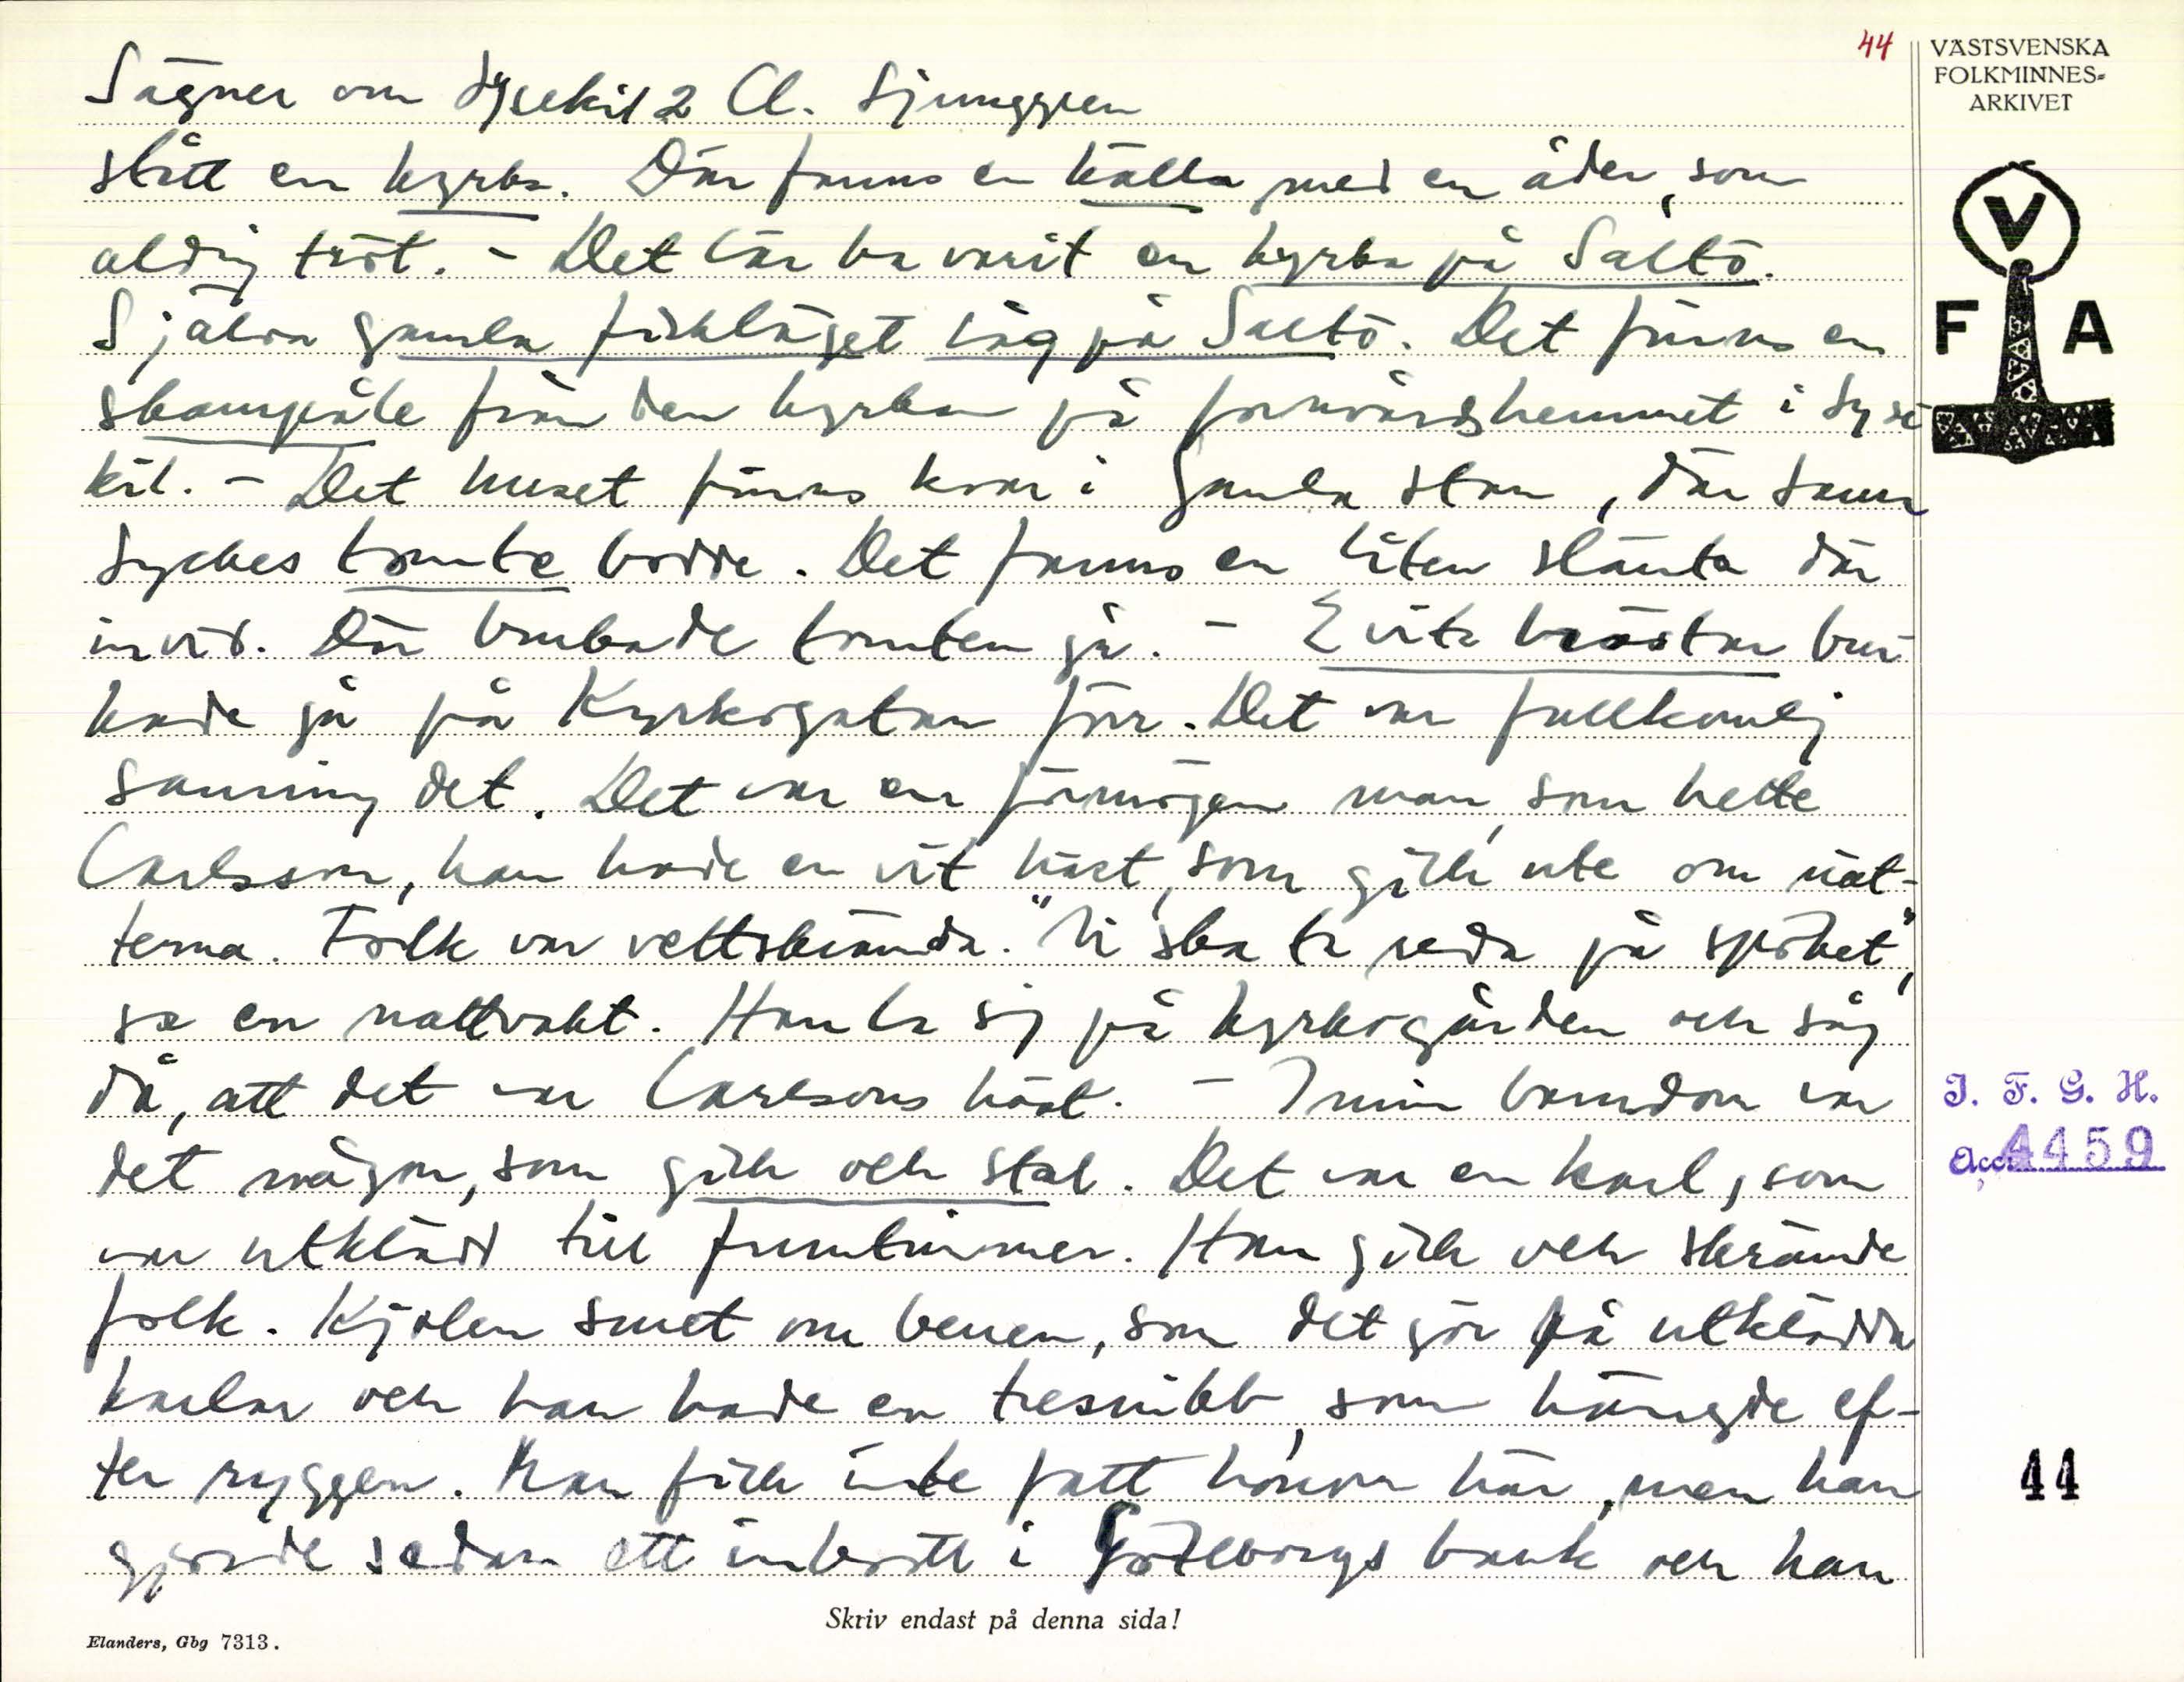 44
VÄSTSVENSKA
FOLKMINNES-
ARKIVET
Sägner om Lysekil 2 Cl. Ljunggren
stått en kyrka. Där fanns en källa med en åder, som
aldrig tröt. - Det lär ha varit en kyrka på Saltö.
Själva gamla fiskläget låg på Saltö. Det finns en
skampåle från den kyrkan på fornvårdshemmet i Lyse
kil. - Det huset finns kvar i Gamla stan, där
Lyckes tomte bodde. Det fanns en liten slänta där
invid. Där brukade tomten gå. - 2 vita hästar bru
kade gå på Kyrkogatan förr. Det var fullkomlig
sanning det. Det var en förmögen man, som hette
Carlsson, han hade en vit häst, som gick ute om nät-
terna. Folk var vettskrämda. "Vi ska ta reda på spöket",
sa en nattvakt. Han la sig på kyrkogården och såg
då, att det var Carlsons häst. - I min barndom var
det någon, som gick och stal. Det var en karl, som
var utklädd till fruntimmer. Han gick och skrämde
folk. Kjolen smet om benen, som det gör på utklädda
karlar och han hade en tresnibb, som hängde ef-
ter ryggen. Man fick inte fatt honom här, men han
gjorde sedan ett inbrott i Göteborgs bank och han
V
F A
J. F. G. H.
Acc. 4459
44
Skriv endast på denna sida!
Elanders, Gbg 7313.